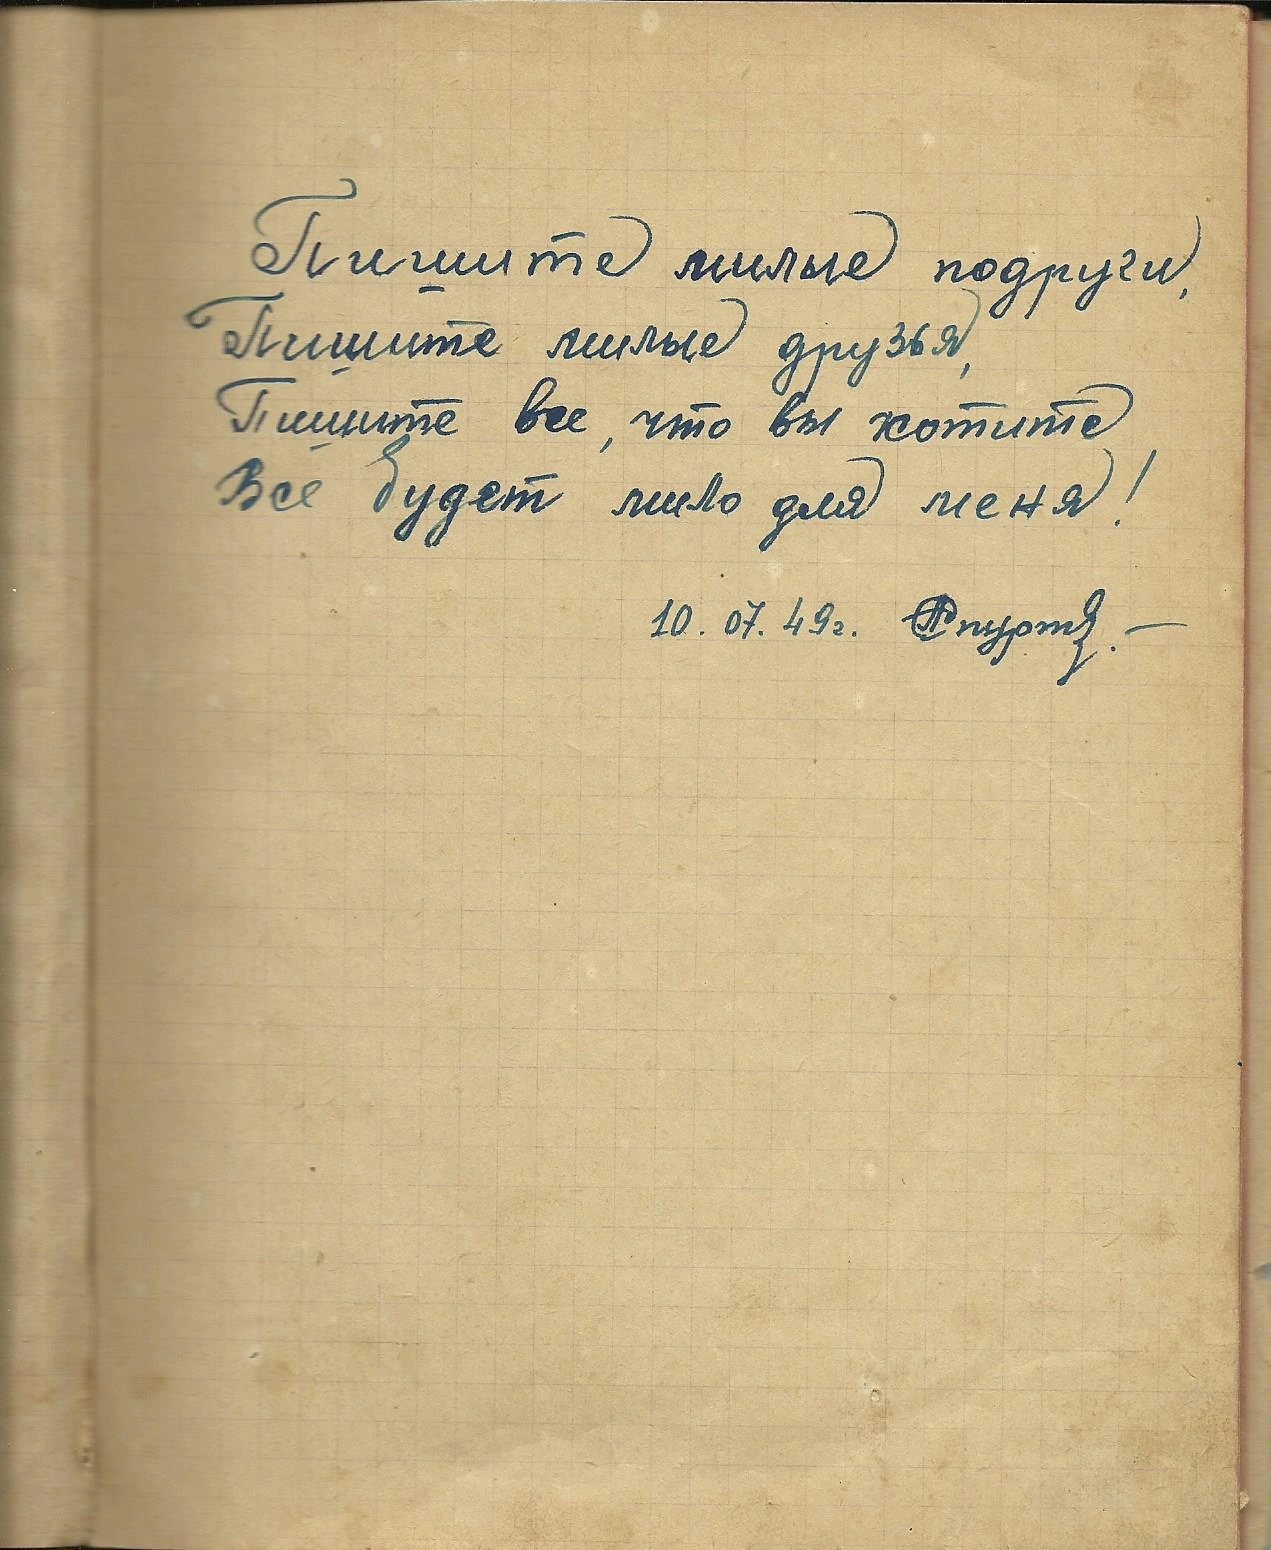 Пишите милые подруги,
Пишите милые друзья,
Пишите все, что вы хотите
Всё будет мило для меня!
10. 07. 49г.